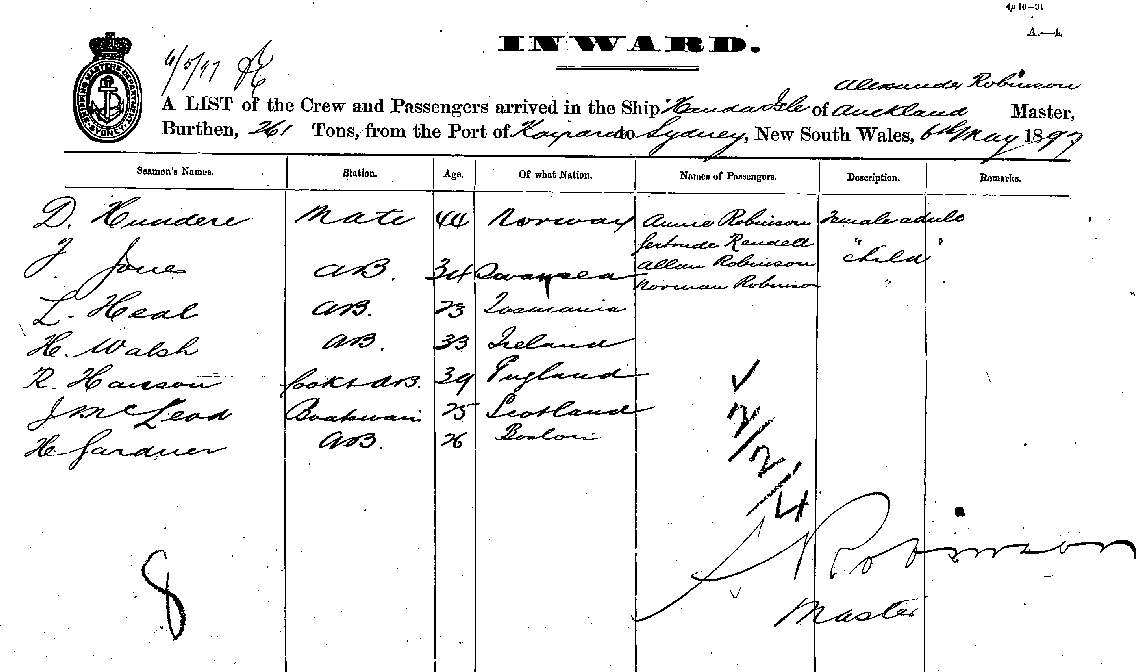 4p 10—31
A.—1.
INWARD.
6/5/97
Alexander Robinson
A LIST of the Crew and Passengers arrived in the Ship Handa Isle of Auckland Master,
Burthen, 261 Tons, from the Port of Kaipara to Sydney, New South Wales, 6th May 1897
Seamen's Names. Station. Age. Of what Nation. Names of Passengers. Description. Remarks.
D. Hundere Mate 44 Norway Annie Robinson Female adult
Gertrude Rendell " "
J. Jones AB. 34 Swansea Allan Robinson Child
Norman Robinson "
L. Heal AB. 23 Tasmania
H. Walsh AB. 33 Ireland
R. Hanson Cook & AB. 39 England
J McLeod Boatswain 25 Scotland
H. Gardner AB. 26 Boston
2/2/4
8
A Robinson
Master